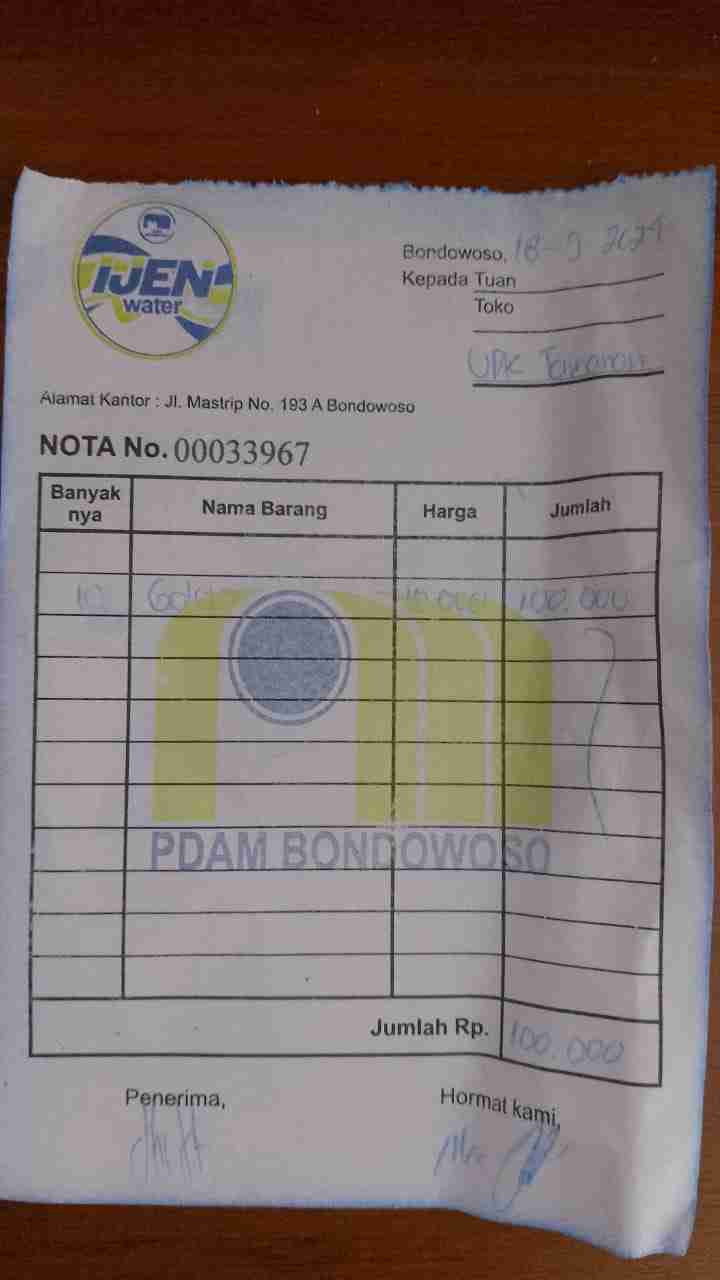 IJEN
water
Bondowoso, 18-9 2024
Kepada Tuan
Toko
UPK Tamanan
Alamat Kantor : Jl. Mastrip No. 193 A Bondowoso
NOTA No. 00033967
Banyak nya Nama Barang Harga Jumlah
10 10.000 100.000
PDAM BONDOWOSO
Jumlah Rp. 100.000
Penerima, Hormat kami,